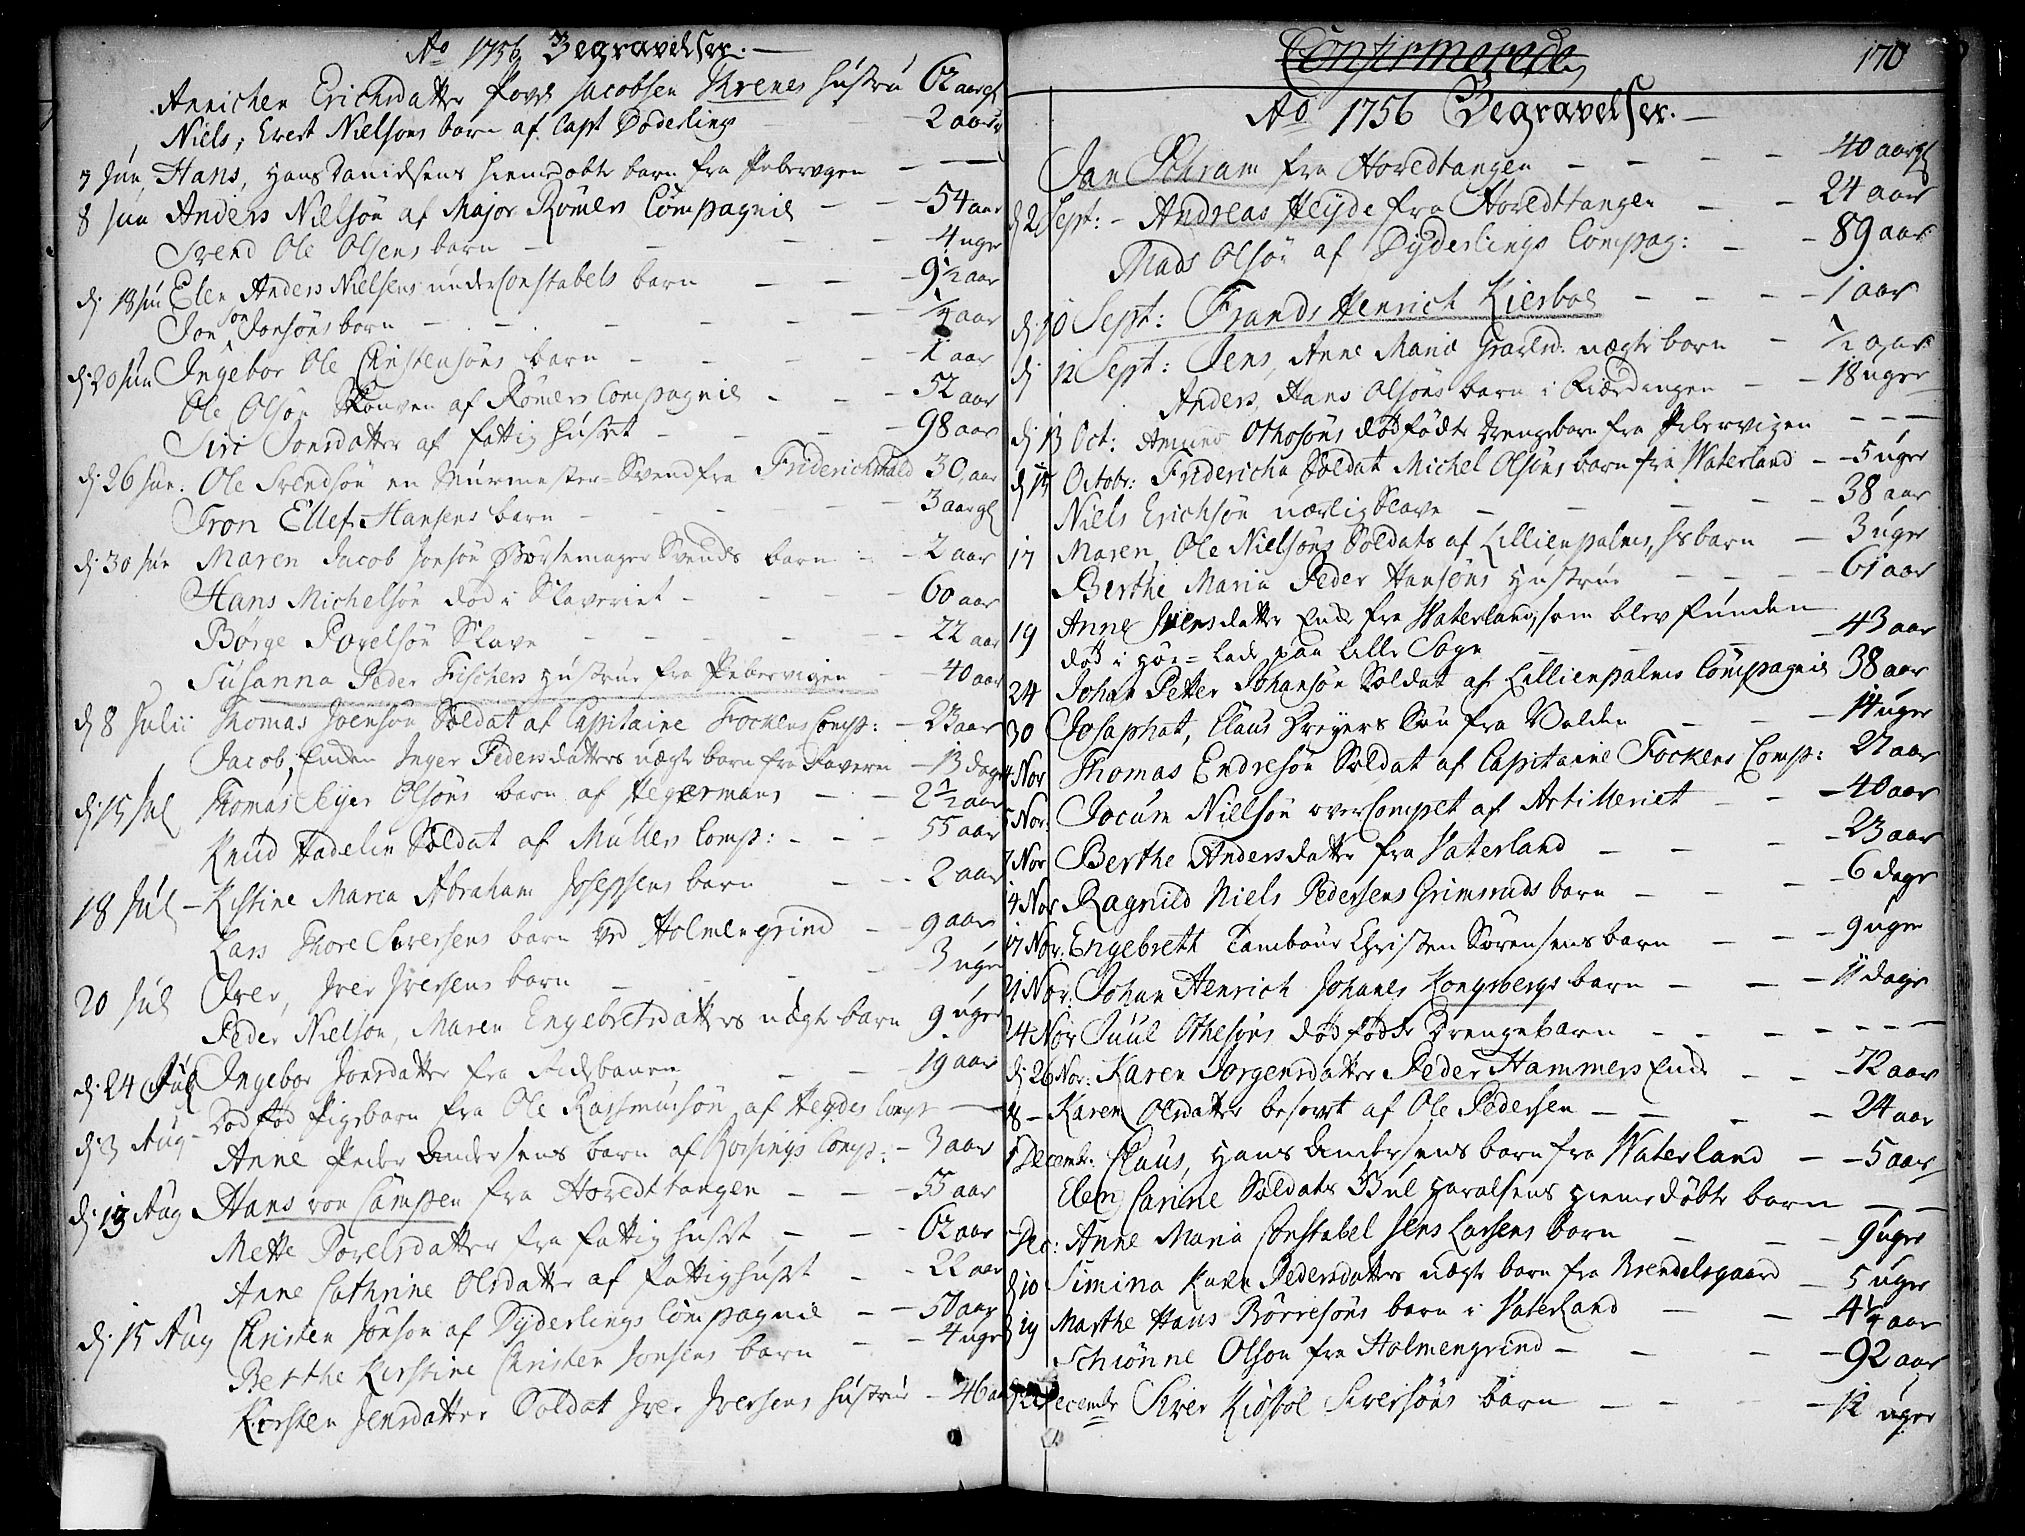 Ao 1756 Begravelser.
Annichen Erichsdatter Povel Jacobsen Threnes Hustru 62 aargl
Niels, Evert Nielsøns barn af Capt Døderling 2 aar
7 Jun, Hans, Hans Danielsens hiemdøbte barn fra Pebervigen
8 Jun Anders Nielsøn af Major Rømers Compagnie 54 aar
Svend Ole Olsens barn 4 uger
d. 18 Jun Elen Anders Nielsens under Constabels barn 9 1/2 aar
Jon Jonsøns barn 1/4 aar
d. 20 Jun Ingebor Ole Christensøns barn 1 aar
Ole Olsøn Skouven af Rømers Compagnie 52 aar
Siri Jonsdatter af fattig Huset 98 aar
d. 26 Jun. Ole Svendsøn en Murmester-Svend fra Friderichshald 30, aar
Tron Ellef Hansens barn 3 aargl
d. 30 Jun Maren Jacob Jonsøn Børstemager Svends barn 2 aar
Hans Michelsøn død i Slaveriet 60 aar
Børge Povelsøn Slave 22 aar
Susanna Peder Fischers Hustrue fra Pebervigen 40 aar
d 8 Julii Thomas Joensøn Soldat af Capitaine Fockens Comp: 23 aar
Jacob, Enken Inger Pedersdatters uægte barn fra 13 dage
d. 15 Jul Thomas Ejer Olsøns barn af Hegermans 2 1/2 aar
Knud Hadelin Soldat af Müllers Comp: 55 aar
18 Jul Kistine Maria Abraham Josephsens barn 2 aar
Lars Thore Sversens barn ved Holmengrind 9 aar
20 Jul Iver, Iver Iversens barn 3 uger
Peder Nielsøn, Maren Engebretsdatters uægte barn 9 uger
d. 24 Jul Ingebor Jonsdatter fra 19 aar
d. 3 Aug Død fød Pigebarn fra Ole Rassmusøn af Heydes Comp
Anne Peder Andersens barn af Comp: 3 aar
d. 13 Aug Hans von Campen fra Hovedtangen 55 aar
Mette Povelsdatter fra fattig huset 62 aar
Anne Cathrine Olsdatter af fattighuset 22 aar
d. 15 Aug Christen Jonsøn af Dyderlings Compagnie 50 aar
Berthe Kirstine Christen Jonsens barn 4 uger
Kirsten Jensdatter Soldat Iver Iversens Hustrue 46 aar
Confirmerede 170
Ao 1756 Begravelser.
Jan Schram fra Hovedtangen 40 aargl
d 2 Sept: Andreas Heyde fra Hovedttangen 24 aar
Mads Olsøn af Dyderlings Compag: 89 aar
d 10 Sept: Frands Henrich Kierboe 1 aar
d 12 Sept: Jens, Anne Marie Gravend: uægte barn 1/2 aar
Anders, Hans Olsøns barn i 18 uger
d 13 Oct: Othosøns dødfødte Drengebarn fra Pebervigen
d 15 Octobr: Fridericha Soldat Michel Olsøns barn fra Waterland 5 uger
Niels Erichsøn uærlig Slave 38 aar
17 Maren, Ole Nielsøns Soldats af Lillienpalms, barn 3 uger
Berthe Maria Peder Hansøns Hustrue 61 aar
19 Anne datter Enke fra Waterland, som blev funden
død i Høe-Lade paa Lille Sogn 43 aar
24 Johan Petter Johansøn Soldat af Lillienpalms Compagnie 38 aar
30 Josaphat, Claus Dreyers Søn fra Volden 14 uger
4 Nor Thomas Endresøn Soldat af Capitaine Fockens Comp: 27 aar
5 Nor: Jocum Nielsøn over Compet af Artilleriet 40 aar
7 Nor Berthe Andersdatter fra Vaterland 23 aar
14 Nor Ragnild Niels Pedersens Grimsruds barn 6 dage
17 Nor: Engebrett Tambour Christen Sørensens barn 9 uger
21 Nor: Johan Henrich Johanes Kongsbergs barn 11 dage
24 Nor Juul Othesøns død fødte Drengebarn
d. 26 Nor: Karen Jorgensdatter Peder Hammers Enke 72 aar
28 Karen Olsdatter besovet af Ole Pedersen 24 aar
5 Decembr: Claus, Hans Andersens barn fra Waterland 5 aar
Elen Carine Soldats Haralsens hiemdøbte barn
Dec: Anne Maria Constabel Jens Larsens barn 9 uger
d 10 Simina Karen Pedersdatters uægte barn fra 5 uger
d 19 Marthe Hans Børresøns barn i Vaterland 4 1/4 aar
Schiønne Olson fra Holmengrind 92 aar
Decembr Siver Kiøsbøl Siversøns barn 12 uger